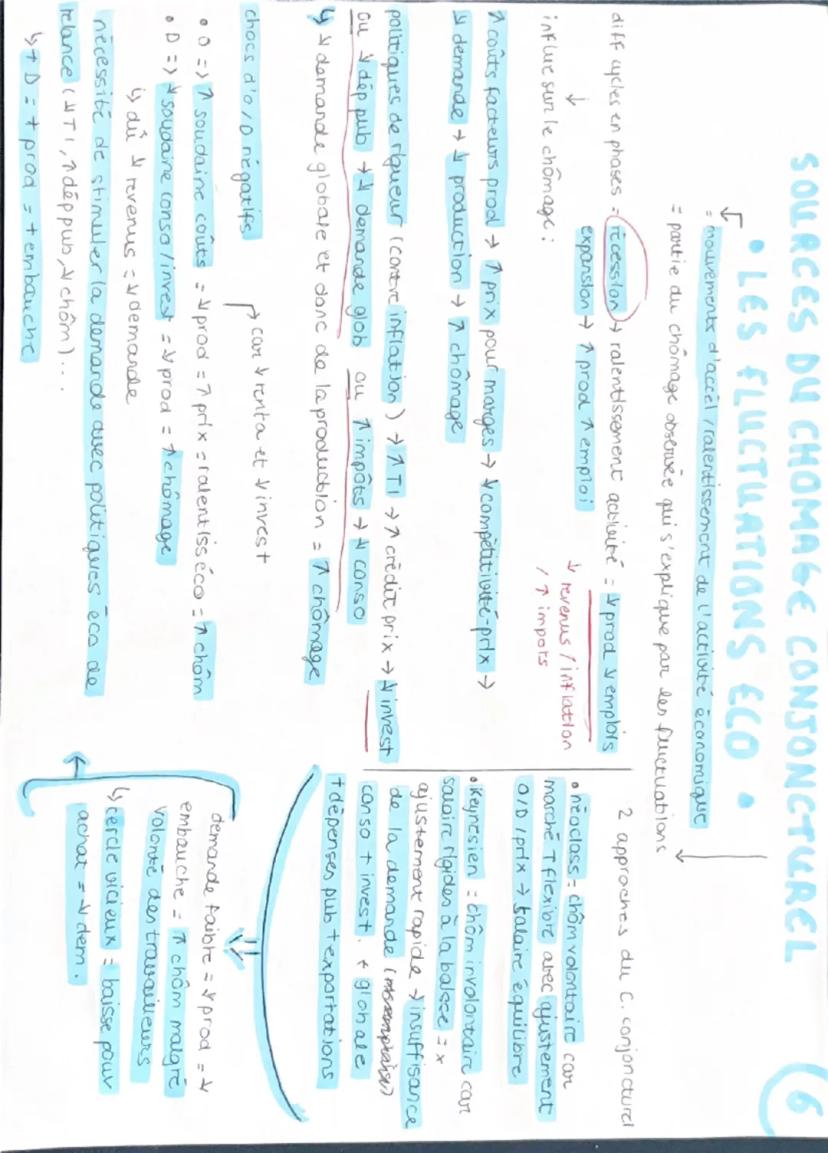 SOURCES DU CHOMAGE CONJONCTUREL
6
• LES FLUCTUATIONS ECO •
= mouvements d'accél/ralentissement de l'activité économique
= partie du chômage observée qui s'explique par les fluctuations
diff cycles en phases = récession → ralentissement activité = ↓prod ↓emplois
expansion → ↑ prod ↑ emploi
↓ revenus / inflation
/ ↑ impots
↓
influe sur le chômage :
↑ coûts facteurs prod → ↑ prix pour marges → ↓compétitivité-prix →
↓ demande → ↓ production → ↑ chômage
politiques de rigueur (contre inflation) → ↑ TI → ↑ crédit prix → ↓ invest
ou ↓ dép pub → ↓ demande glob ou ↑ impôts → ↓ conso
↳ ↓ demande globale et donc de la production = ↑ chômage
chocs d'O/D négatifs
↱ car ↓ renta et ↓ invest
• O => ↑ soudaine coûts = ↓prod = ↑ prix = ralentiss éco = ↑ chôm
• D => ↓ soudaine conso / invest = ↓ prod = ↑ chômage
↳ dû ↓ revenus = ↓ demande
nécessité de stimuler la demande avec politiques éco de
relance (↓TI, ↑ dép pub, ↓ chôm)...
↳ + D = + prod = + embauche
2 approches du C. conjoncturel
• néoclass = chôm volontaire car
marché T flexible avec ajustement
O/D / prix → salaire équilibre
• Keynésien = chôm involontaire car
salaire rigides à la baisse = x
ajustement rapide → insuffisance
de la demande
conso + invest. + globale
+ dépenses pub + exportations
⇓
demande faible = ↓ prod = ↓
embauche = ↑ chôm malgré
volonté des travailleurs
↳ cercle vicieux = baisse pouv
achat = ↓ dem.